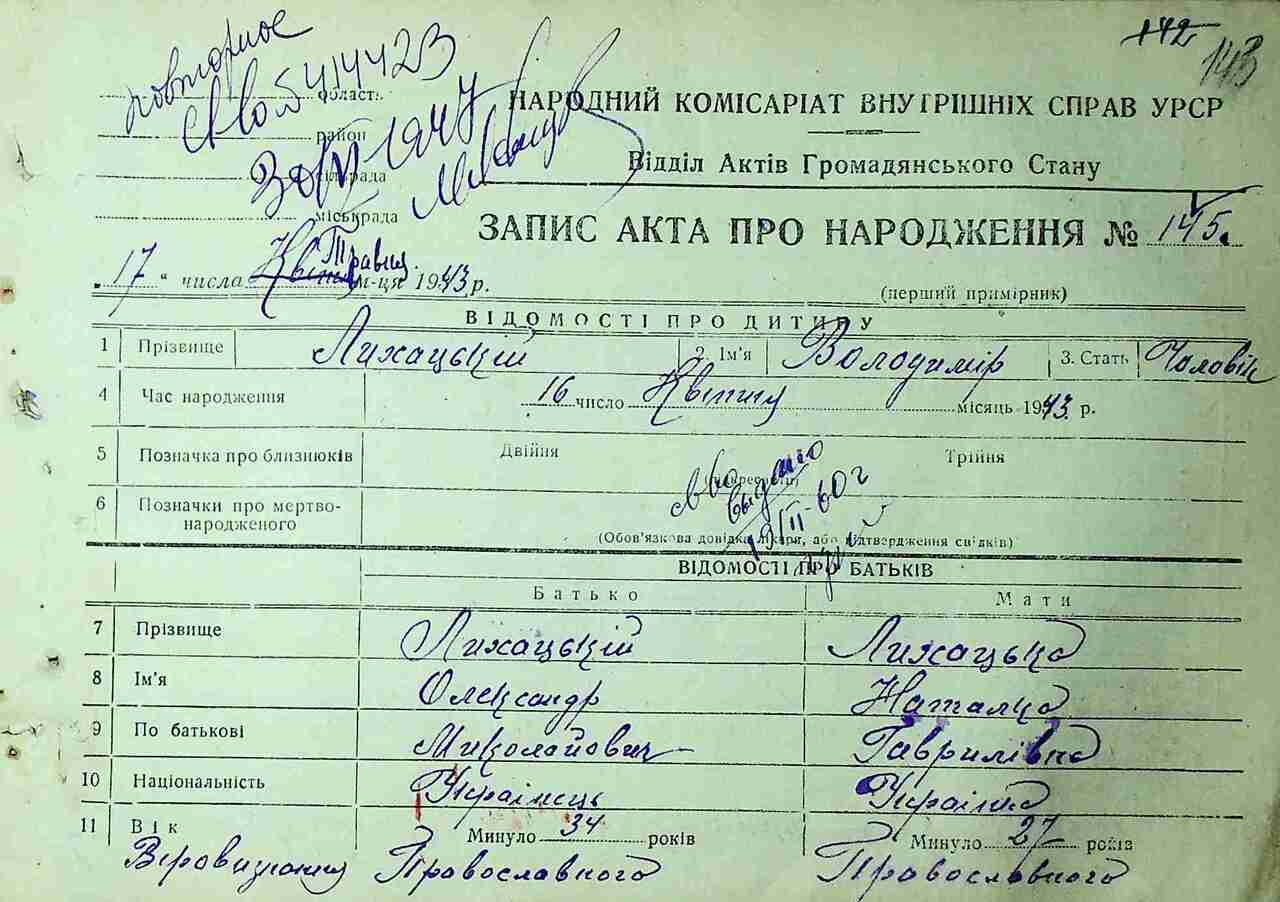 142
143
повторное
Св во 414423
30/VI-1947
область
район
сільрада
міськрада
НАРОДНИЙ КОМІСАРІАТ ВНУТРІШНІХ СПРАВ УРСР
Відділ Актів Громадянського Стану
ЗАПИС АКТА ПРО НАРОДЖЕННЯ № 145
Травня
„ 17 “ числа Квітня м-ця 1943 р.
(перший примірник)
ВІДОМОСТІ ПРО ДИТИНУ
1 Прізвище Лихацький 2. Ім'я Володимір 3. Стать Чоловік
4 Час народження 16 число Квітня місяць 1943 р.
5 Позначка про близнюків Двійня Трійня
св во
выдано
19/II-60 г
6 Позначки про мертво-
народженого
(Обов'язкова довідка лікаря, або підтвердження свідків)
ВІДОМОСТІ ПРО БАТЬКІВ
Батько Мати
7 Прізвище Лихацький Лихацька
8 Ім'я Олександр Наталка
9 По батькові Миколайович Гаврилівна
10 Національність Українець Українка
11 Вік Минуло 34 років Минуло 27 років
Віровизнання Православного Православного